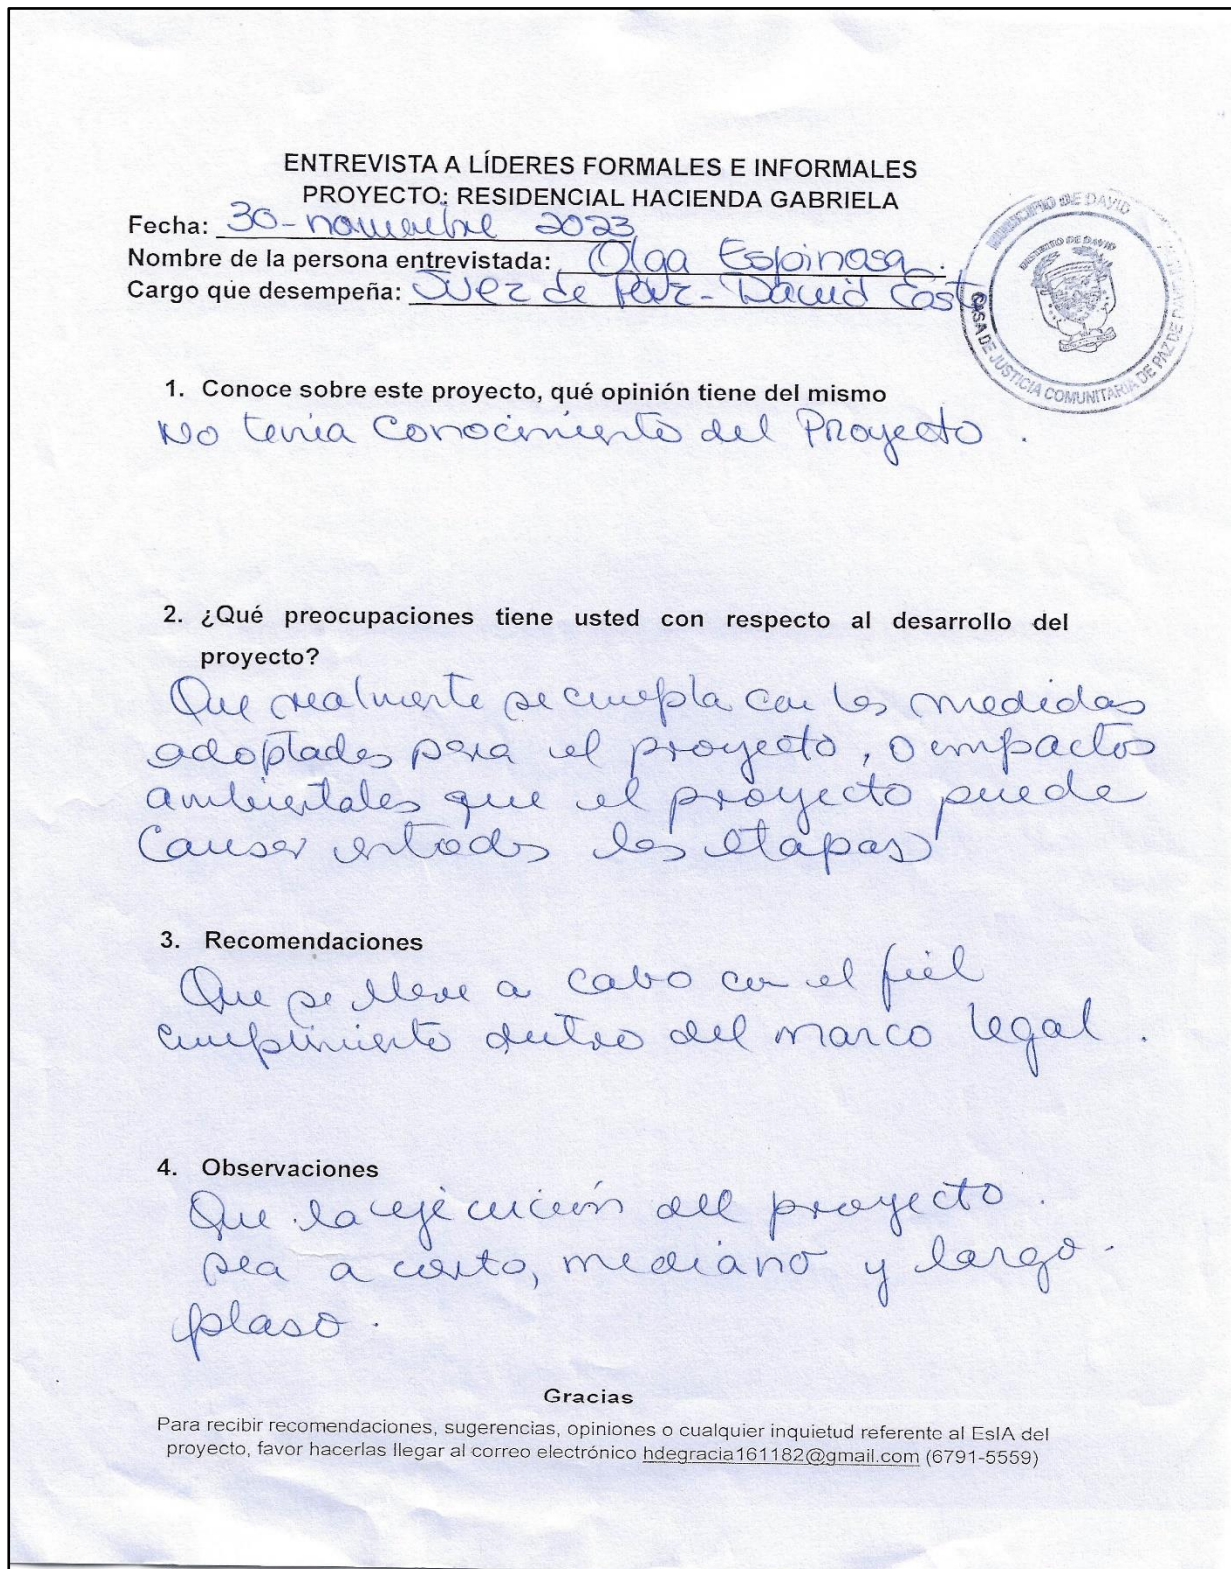 ENTREVISTA A LÍDERES FORMALES E INFORMALES
PROYECTO: RESIDENCIAL HACIENDA GABRIELA
Fecha: 30-noviembre 2023
Nombre de la persona entrevistada: Olga Espinosa.
Cargo que desempeña: Juez de Paz - David Este
MUNICIPIO DE DAVID
DISTRITO DE DAVID
CASA DE JUSTICIA COMUNITARIA DE PAZ DE DAVID
1. Conoce sobre este proyecto, qué opinión tiene del mismo
No tenia Conocimiento del Proyecto.
2. ¿Qué preocupaciones tiene usted con respecto al desarrollo del
proyecto?
Que realmente se cumpla con las medidas
adoptadas para el proyecto, o impactos
ambientales que el proyecto puede
Causar en todas las etapas
3. Recomendaciones
Que se lleve a cabo con el fiel
cumplimiento dentro del marco legal.
4. Observaciones
Que la ejecución del proyecto.
sea a corto, mediano y largo.
plaso.
Gracias
Para recibir recomendaciones, sugerencias, opiniones o cualquier inquietud referente al EsIA del
proyecto, favor hacerlas llegar al correo electrónico hdegracia161182@gmail.com (6791-5559)